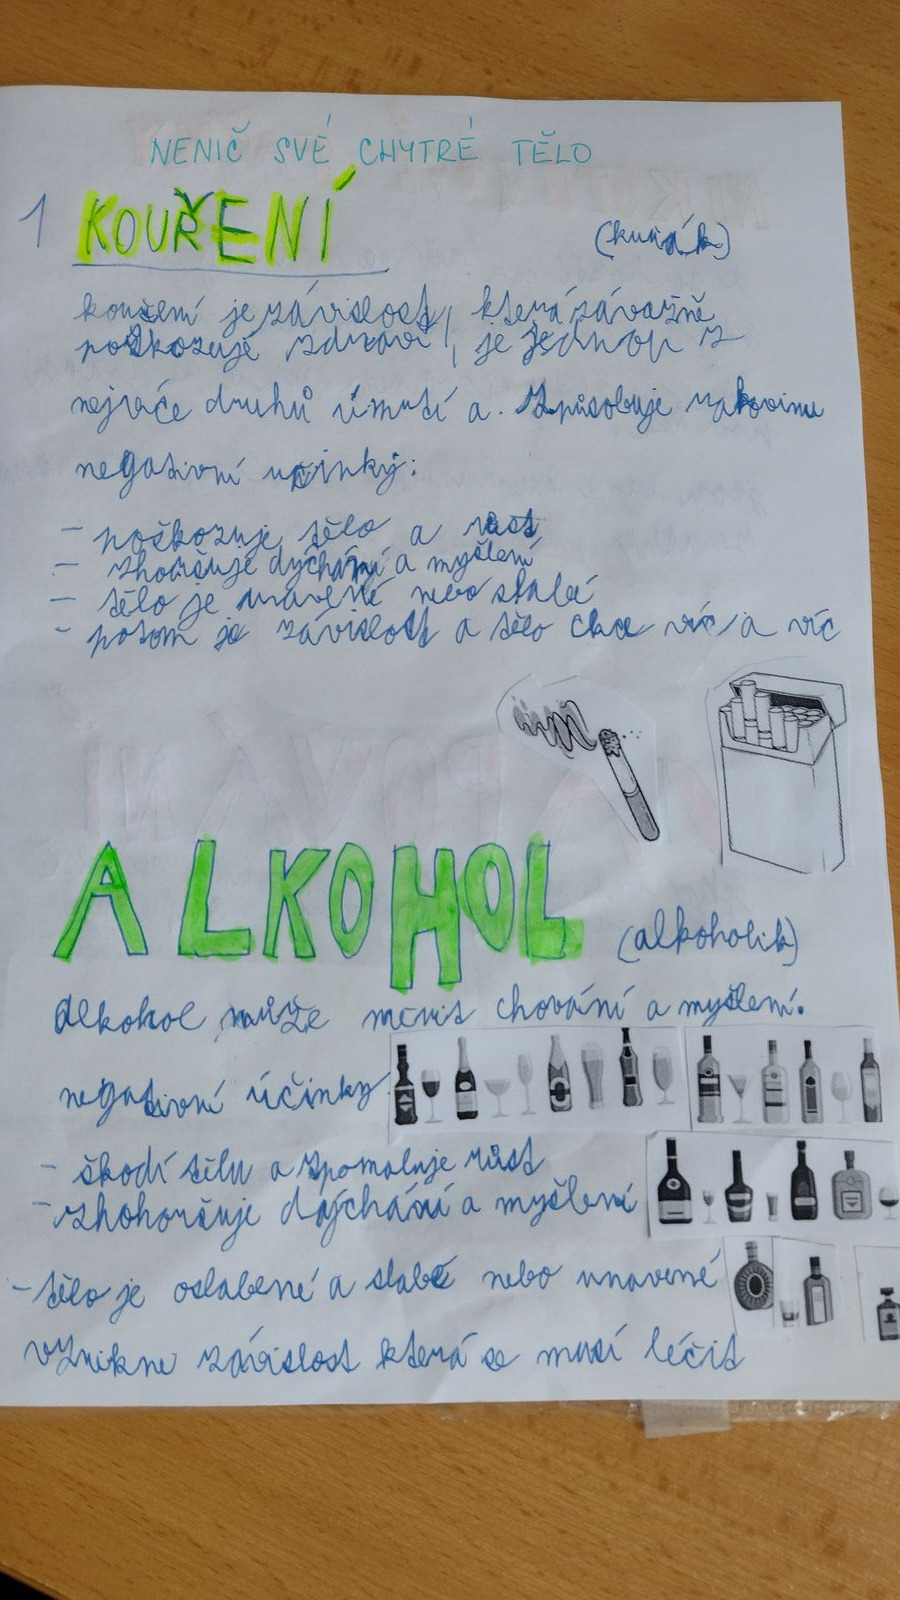 NENIČ SVÉ CHYTRÉ TĚLO
1 KOUŘENÍ
(kuřák)
kouření je závislost, která závažně
poškozuje zdraví, je jednop z
druhů úmrtí a způsobuje rakovinu
negativní učinky:
- poškozuje tělo a růst
- zhoršuje dýchání a myšlení
- tělo je unavené nebo slabé
- potom je závislost a tělo chce víc a víc
ALKOHOL (alkoholik)
Alkohol může měnit chování a myšlení.
negativní účinky
- škodí tělu a zpomaluje růst
- zhohoršuje dýchání a myšlení
- tělo je oslabené a slabé nebo unavené
vznikne závislost která se musí léčit